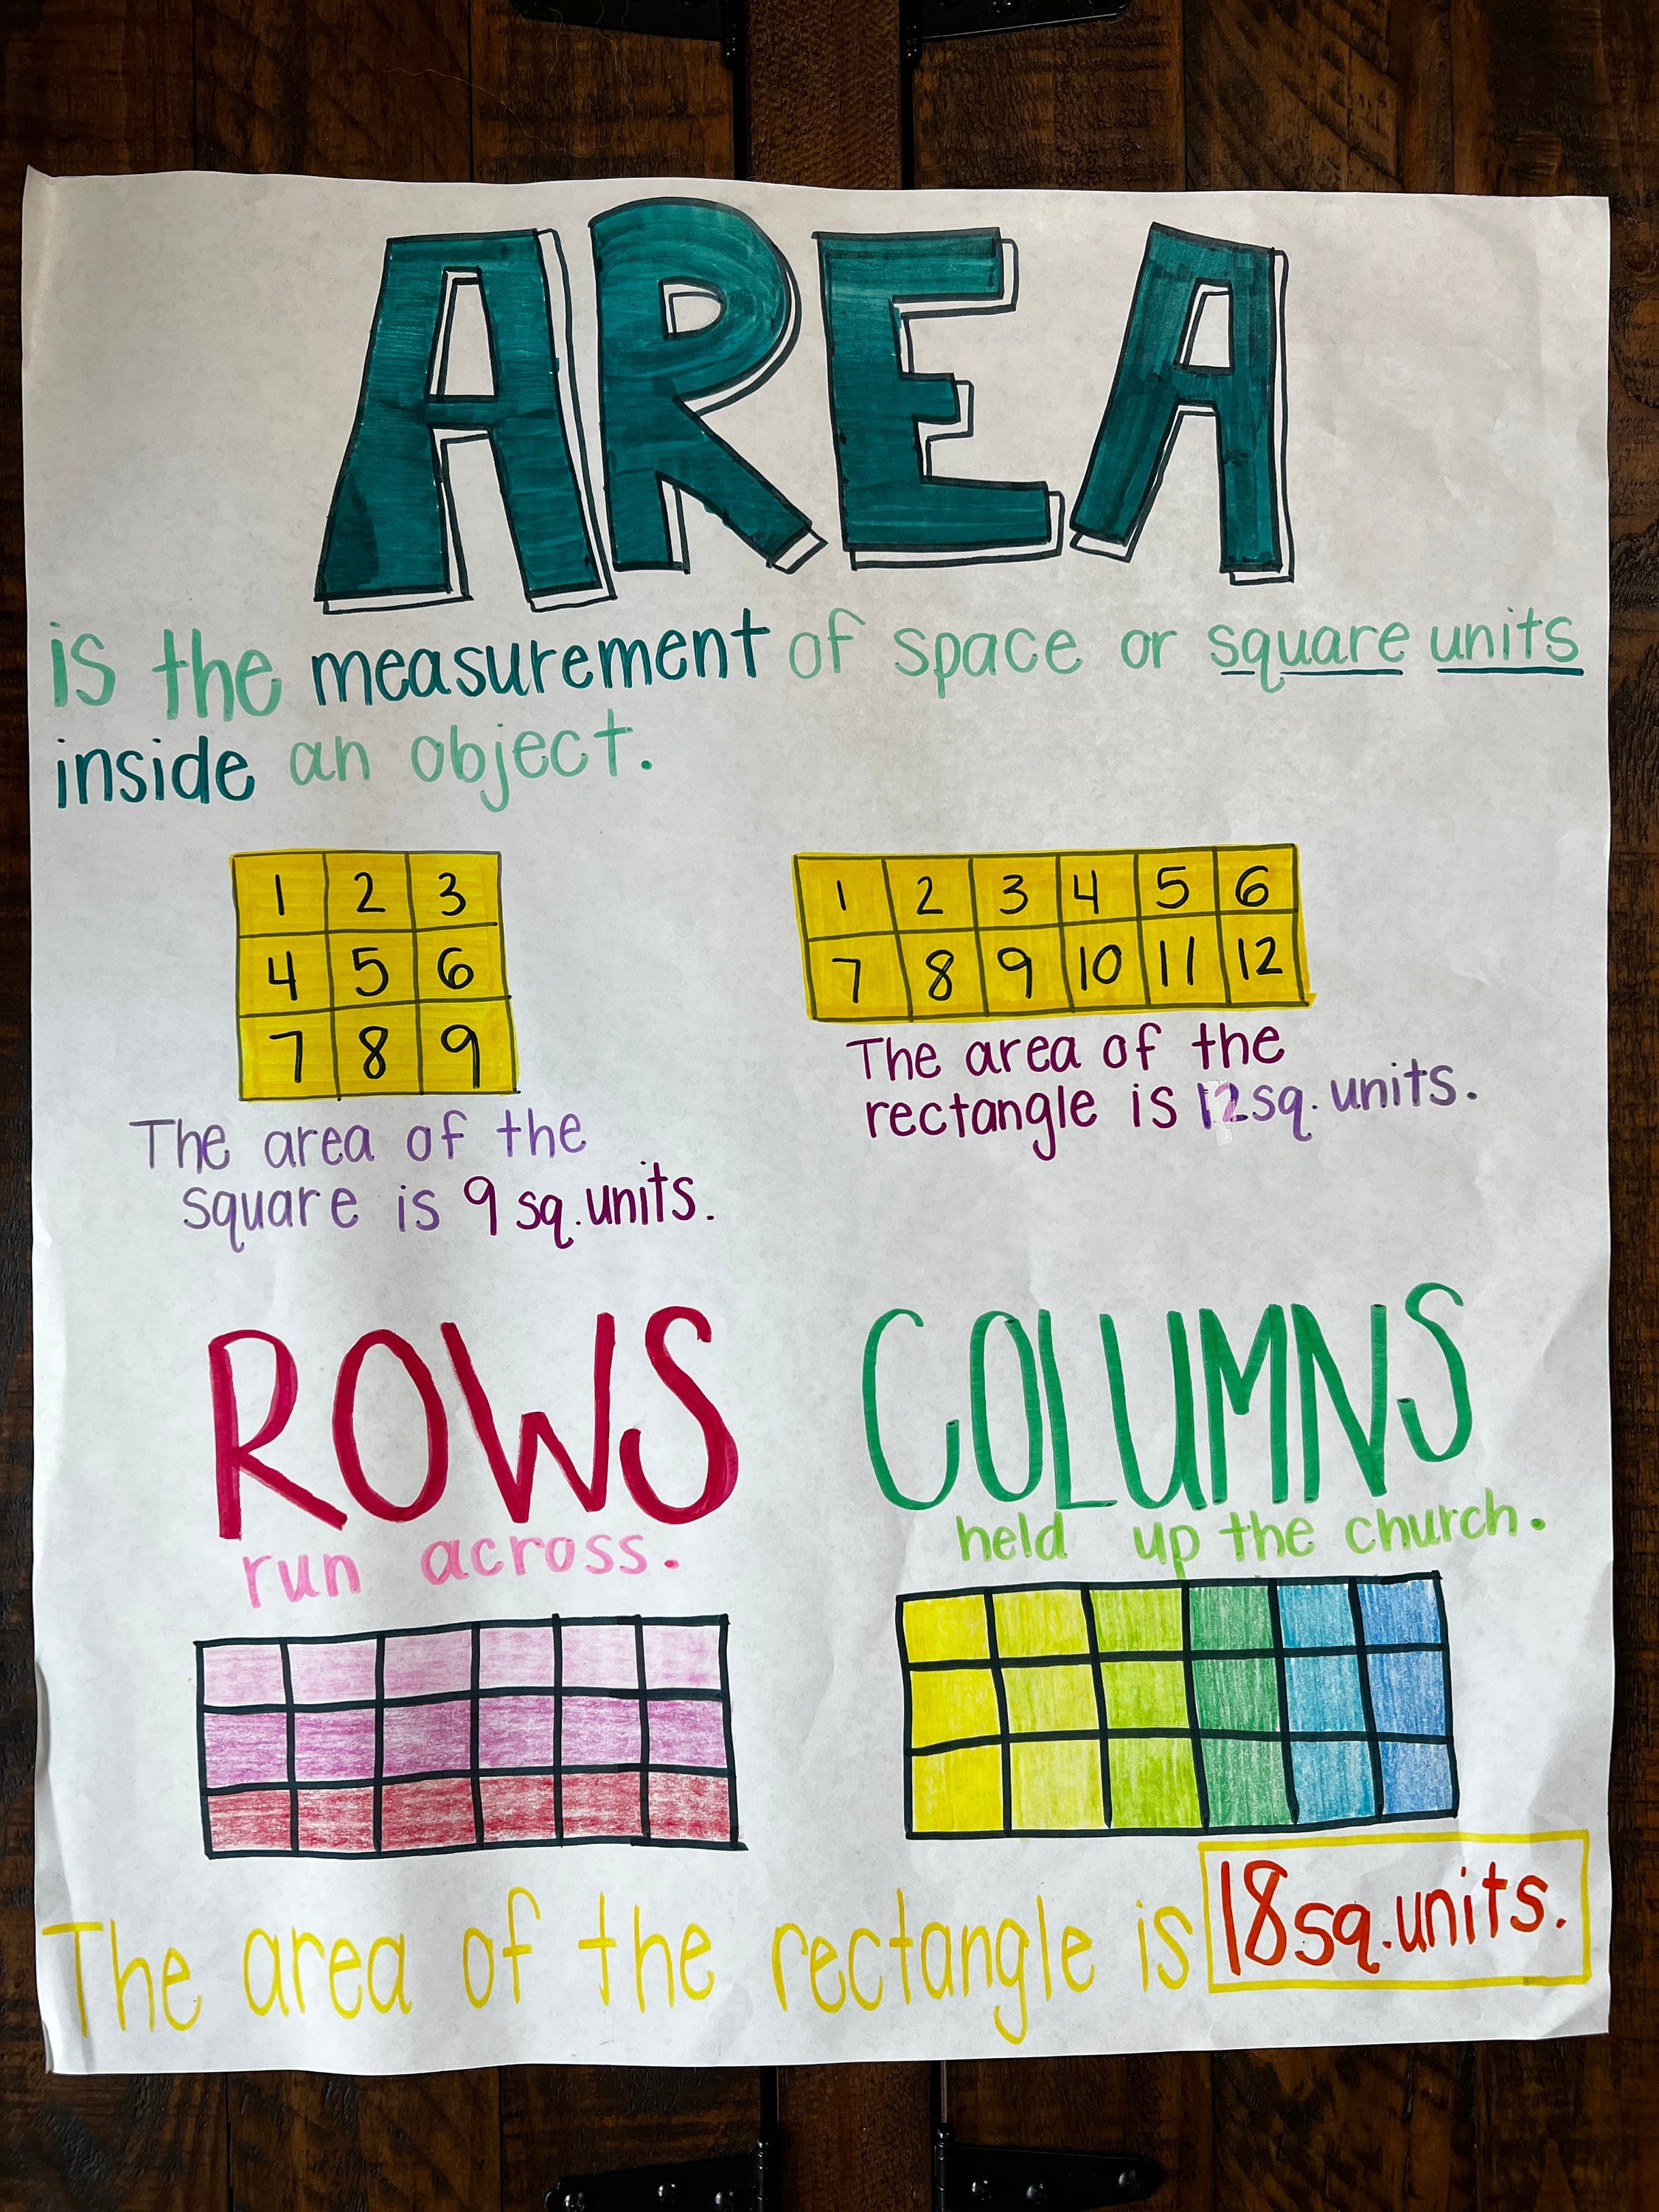 AREA
is the measurement of space or square units
inside an object.
1 2 3
4 5 6
7 8 9
The area of the
square is 9 sq. units.
1 2 3 4 5 6
7 8 9 10 11 12
The area of the
rectangle is 12 sq. units.
ROWS
run across.
COLUMNS
held up the church.
The area of the rectangle is 18 sq. units.